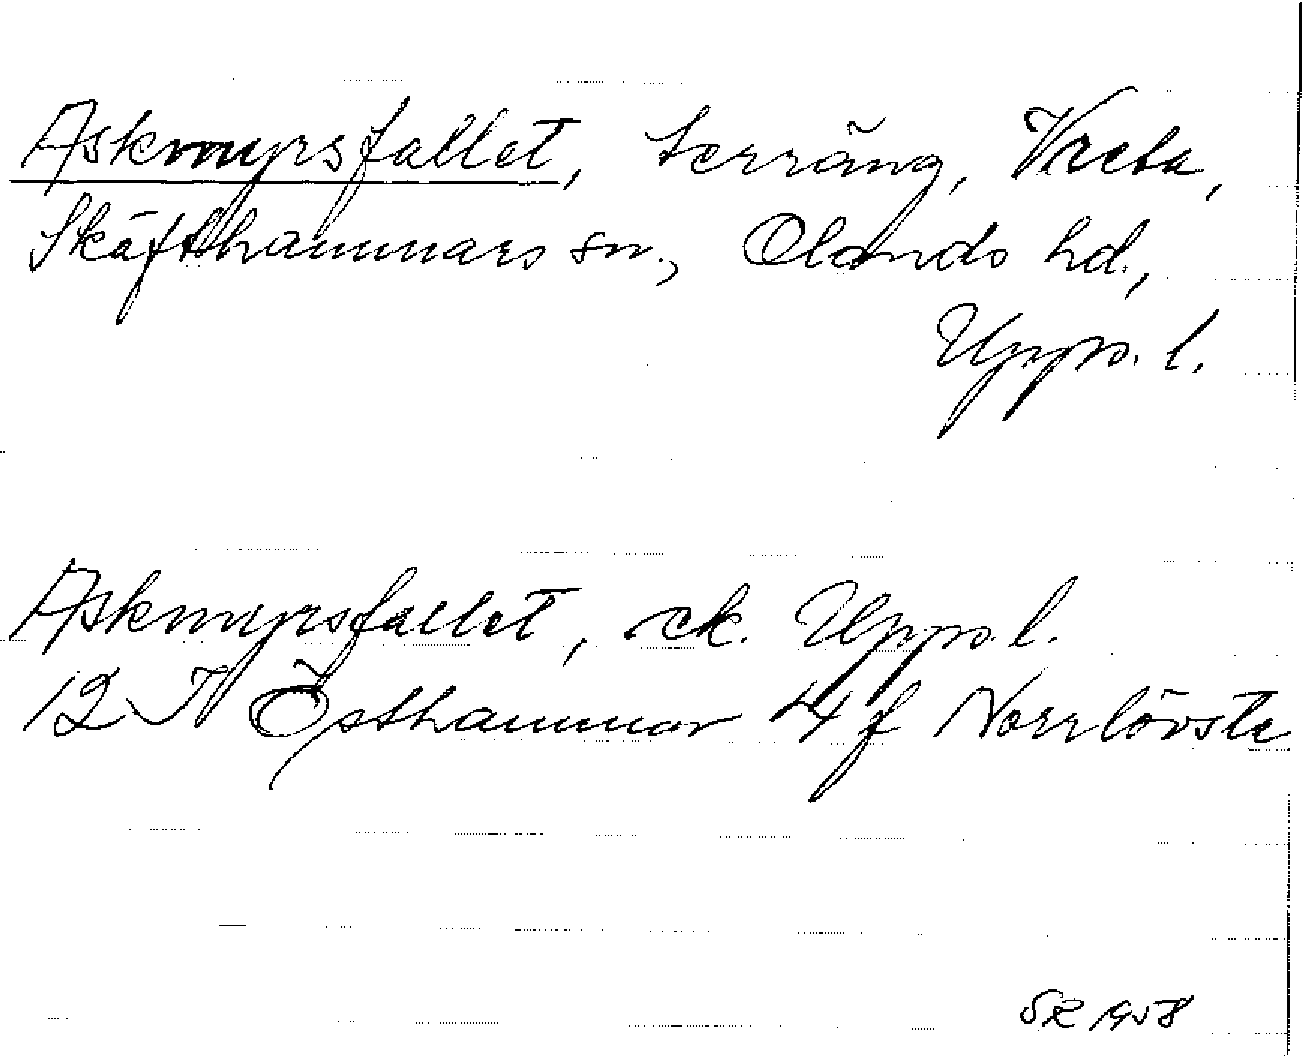 Askmyrsfallet, terräng, Vreta,
Skäfthammars sn., Olands hd.,
Upps. l.
Askmyrsfallet, ek. Upps. l.
12 I Östhammar 4 f Norrlövsta
SR 1958